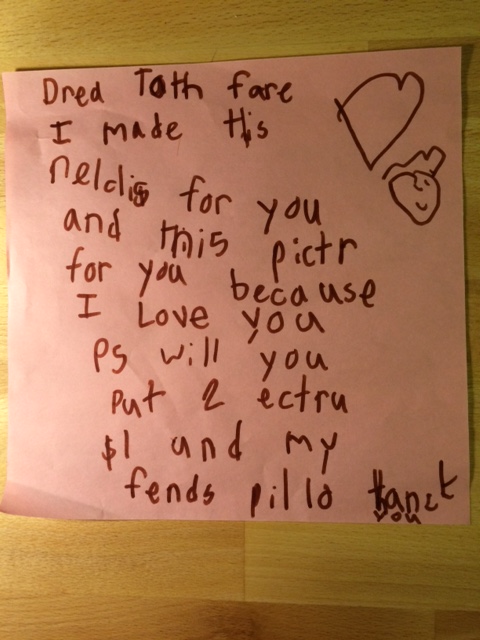 Dred Toth fare
I made this
neldis for you
and this pictr
for you because
I Love you
Ps will you
put 2 ectru
$1 und my
fends pillo thanck
you